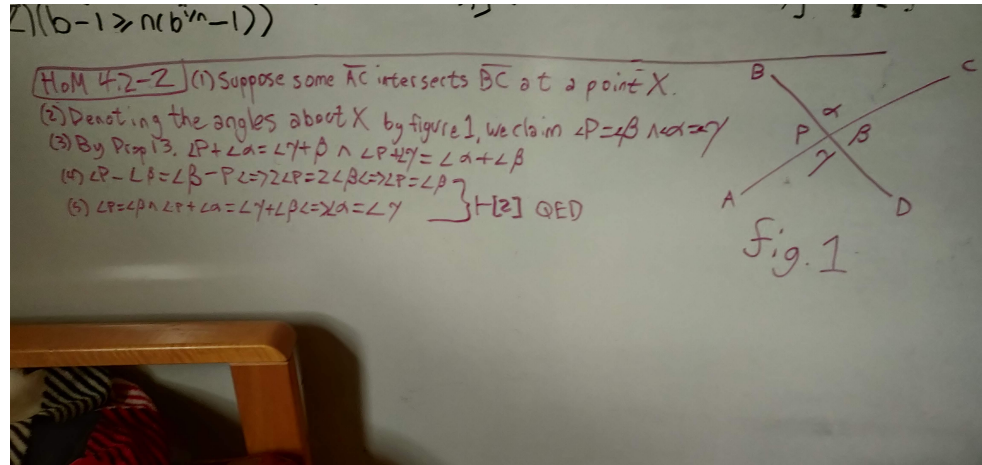 (b-1⩾n(b^{1/n}-1))
HoM 4.2-2 (1) Suppose some \overline{AC} intersects \overline{BC} at a point X.
(2) Denoting the angles about X by figure 1, we claim ∠P=∠β ∧∠α=∠γ
(3) By Prop 13, ∠P+∠α=∠γ+β ∧ ∠P+∠γ=∠α+∠β
(4) ∠P-∠β=∠β-P<=>2∠P=2∠β<=>∠P=∠β
(5) ∠P=∠β∧∠P+∠α=∠γ+∠β<=>∠α=∠γ } ⊢[2] QED
B
C
α
P
β
γ
A
D
fig. 1